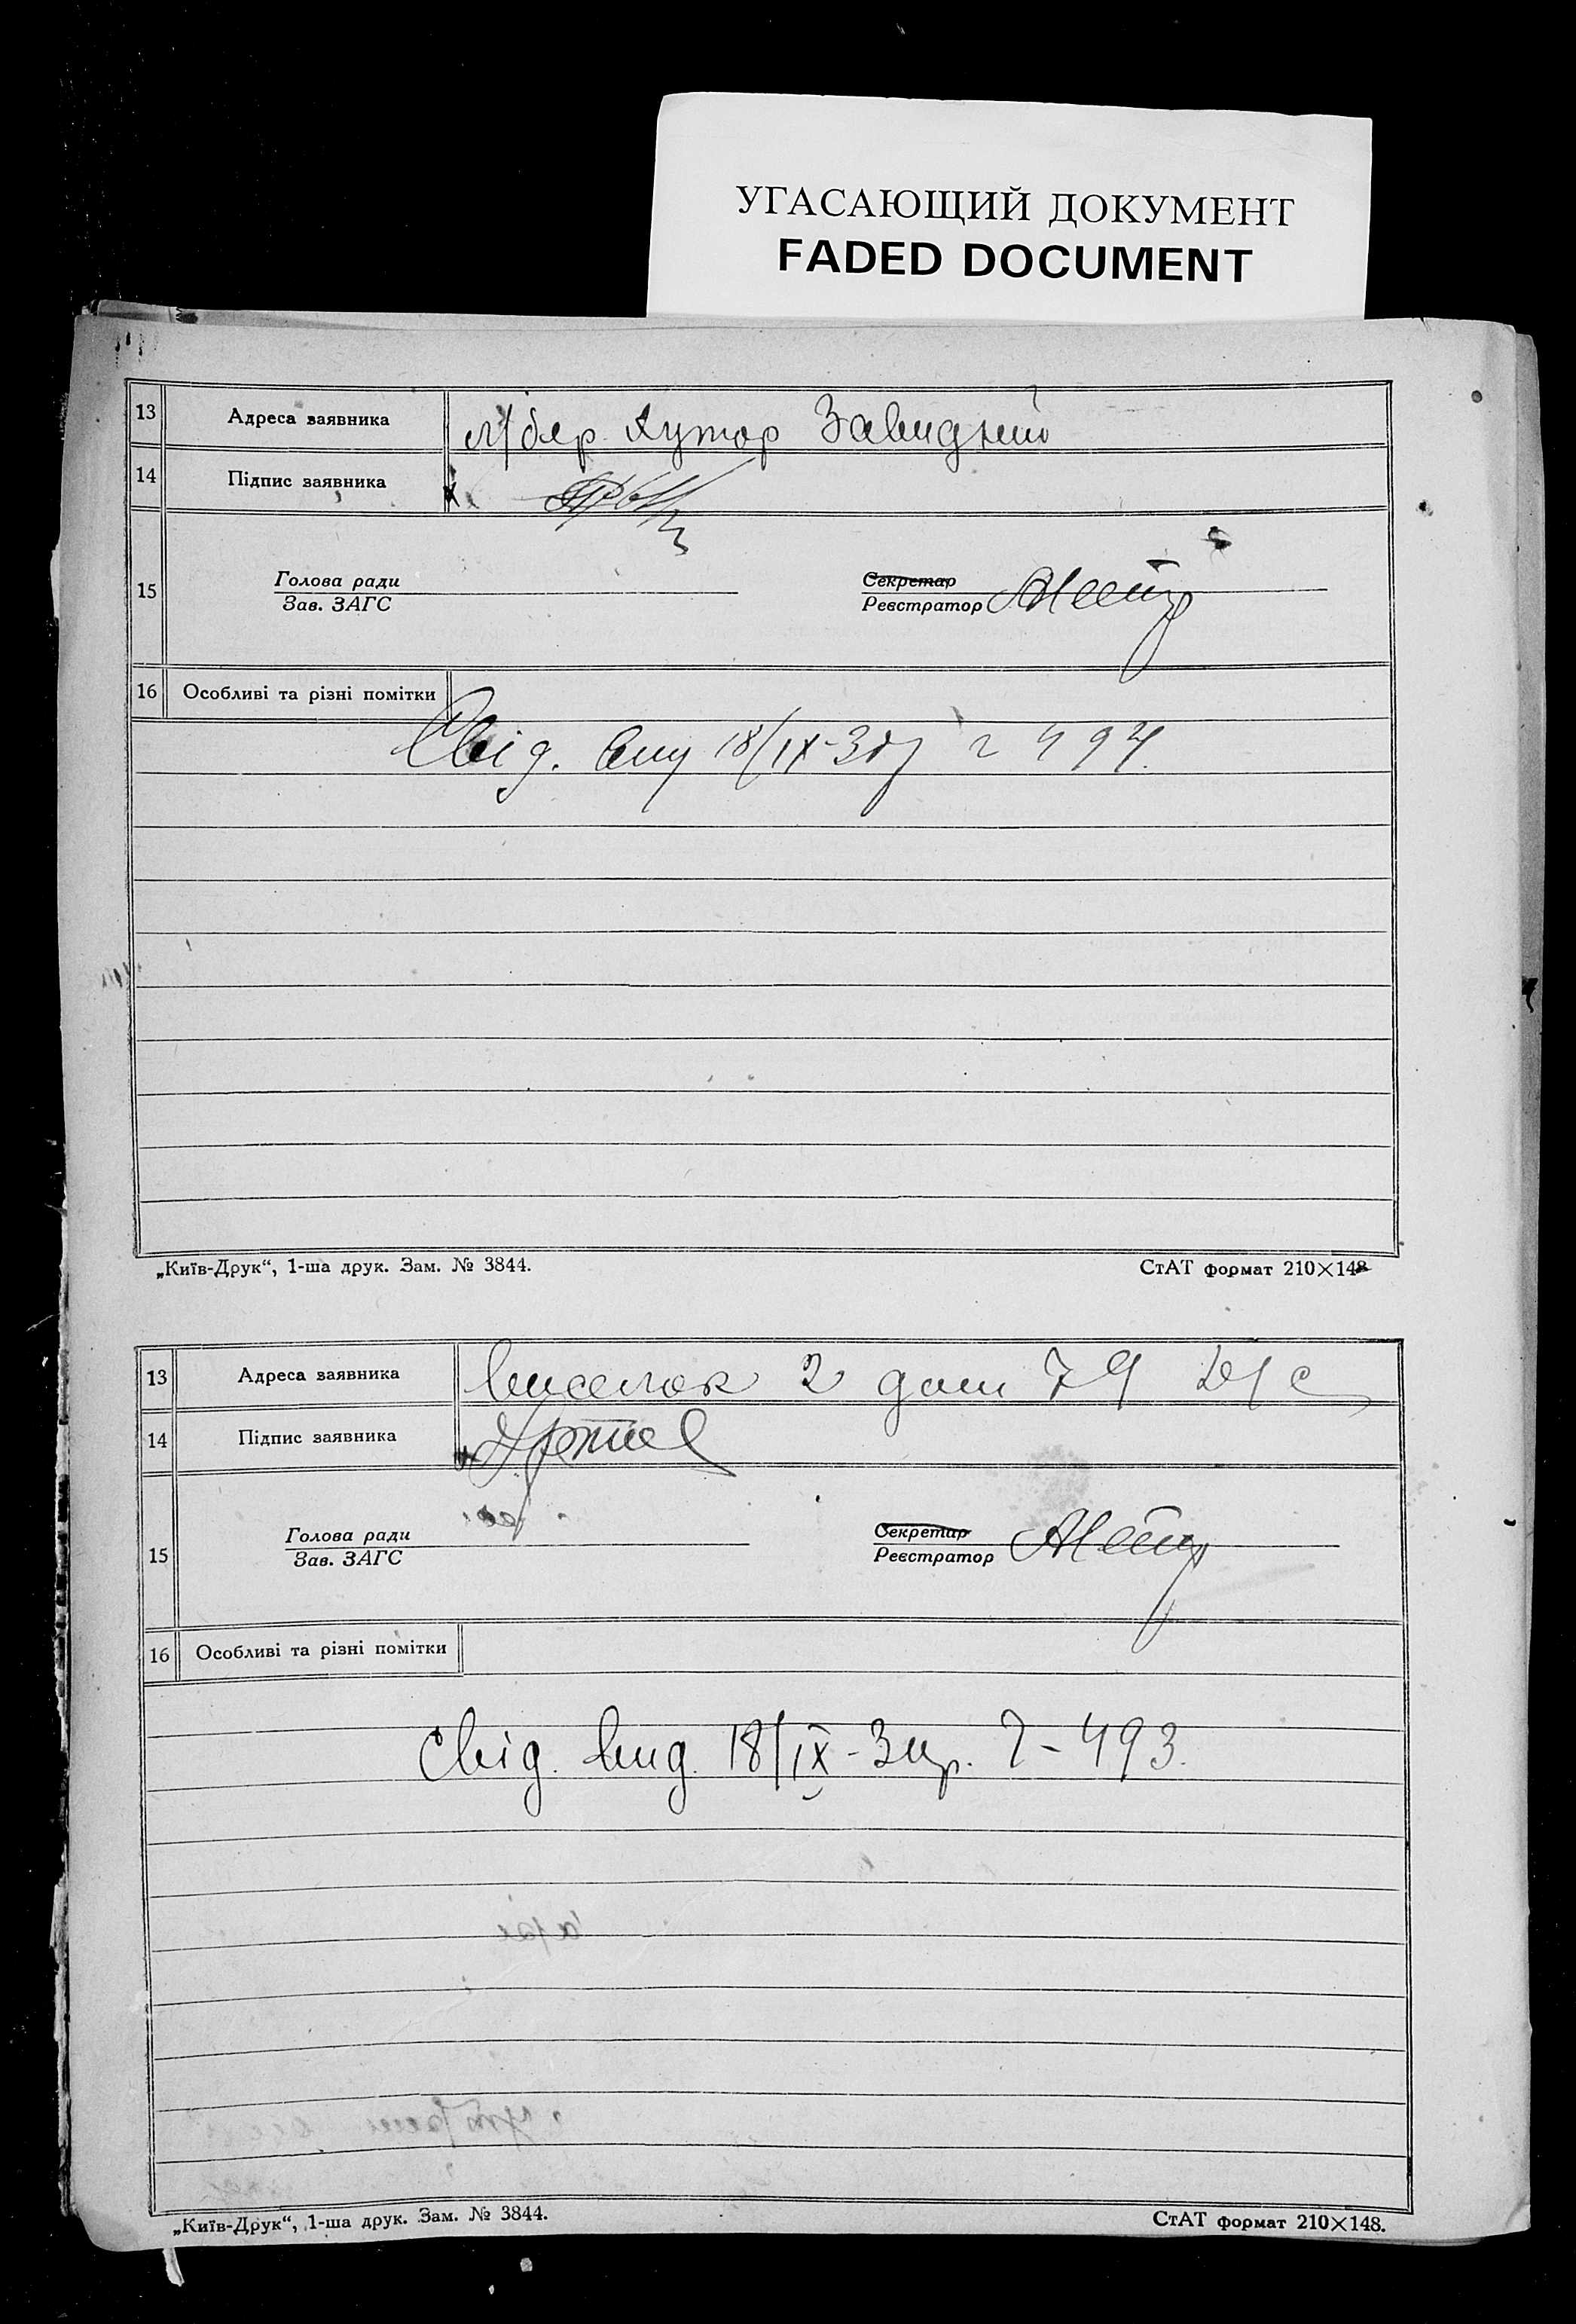 УГАСАЮЩИЙ ДОКУМЕНТ
FADED DOCUMENT
13 Адреса заявника л/бер. Хутор
14 Підпис заявника
15 Голова ради Секретар
Зав. ЗАГС Реєстратор
16 Особливі та різні помітки
Свід. вид 18/IX-
„Київ-Друк“, 1-ша друк. Зам. № 3844. СтАТ формат 210×148
13 Адреса заявника Виселок 2 дом 79
14 Підпис заявника
15 Голова ради Секретар
Зав. ЗАГС Реєстратор
16 Особливі та різні помітки
Свід. вид. 18/IX-32р. 493.
„Київ-Друк“, 1-ша друк. Зам. № 3844. СтАТ формат 210×148.